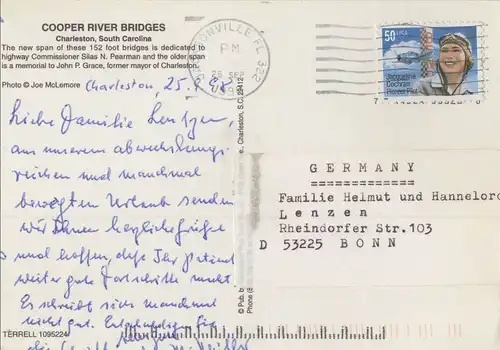 COOPER RIVER BRIDGES
Charleston, South Carolina
The new span of these 152 foot bridges is dedicated to
highway Commissioner Silas N. Pearman and the older span
is a memorial to John P. Grace, former mayor of Charleston.
Photo © Joe McLemore
Charleston, 25.9.
Liebe Familie Lenzen,
aus unserem abwechslungs-
reichen und manchmal
bewegten Urlaub senden
wir Ihnen herzliche Grüße
und hoffen, daß Ihr Patient
weiter gute Fortschritte macht.
Es schreibt sich manchmal
nicht gut. Entschuldigen Sie
die Schrift
TERRELL 1095224
© Pub. b
Phone (8
e., Charleston, S.C. 29412
SONVILLE FL 322
PM
25 SEP
50 USA
Jacqueline
Cochran
Pioneer Pilot
GERMANY
============
Familie Helmut und Hannelore
Lenzen
Rheindorfer Str.103
D 53225 BONN